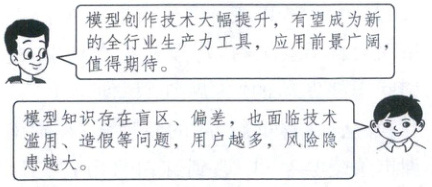 模型创作技术大幅提升，有望成为新
的全行业生产力工具，应用前景广阔，
值得期待。
模型知识存在盲区、偏差，也面临技术
滥用、造假等问题，用户越多，风险隐
患越大。